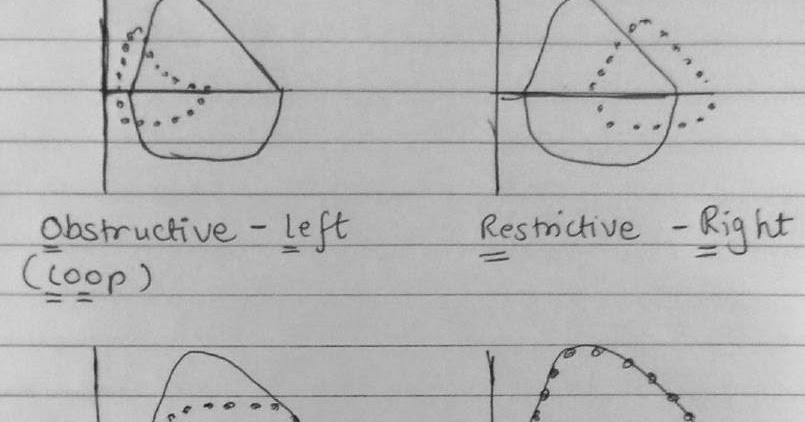 Obstructive - Left
Restrictive - Right
(LOOP)